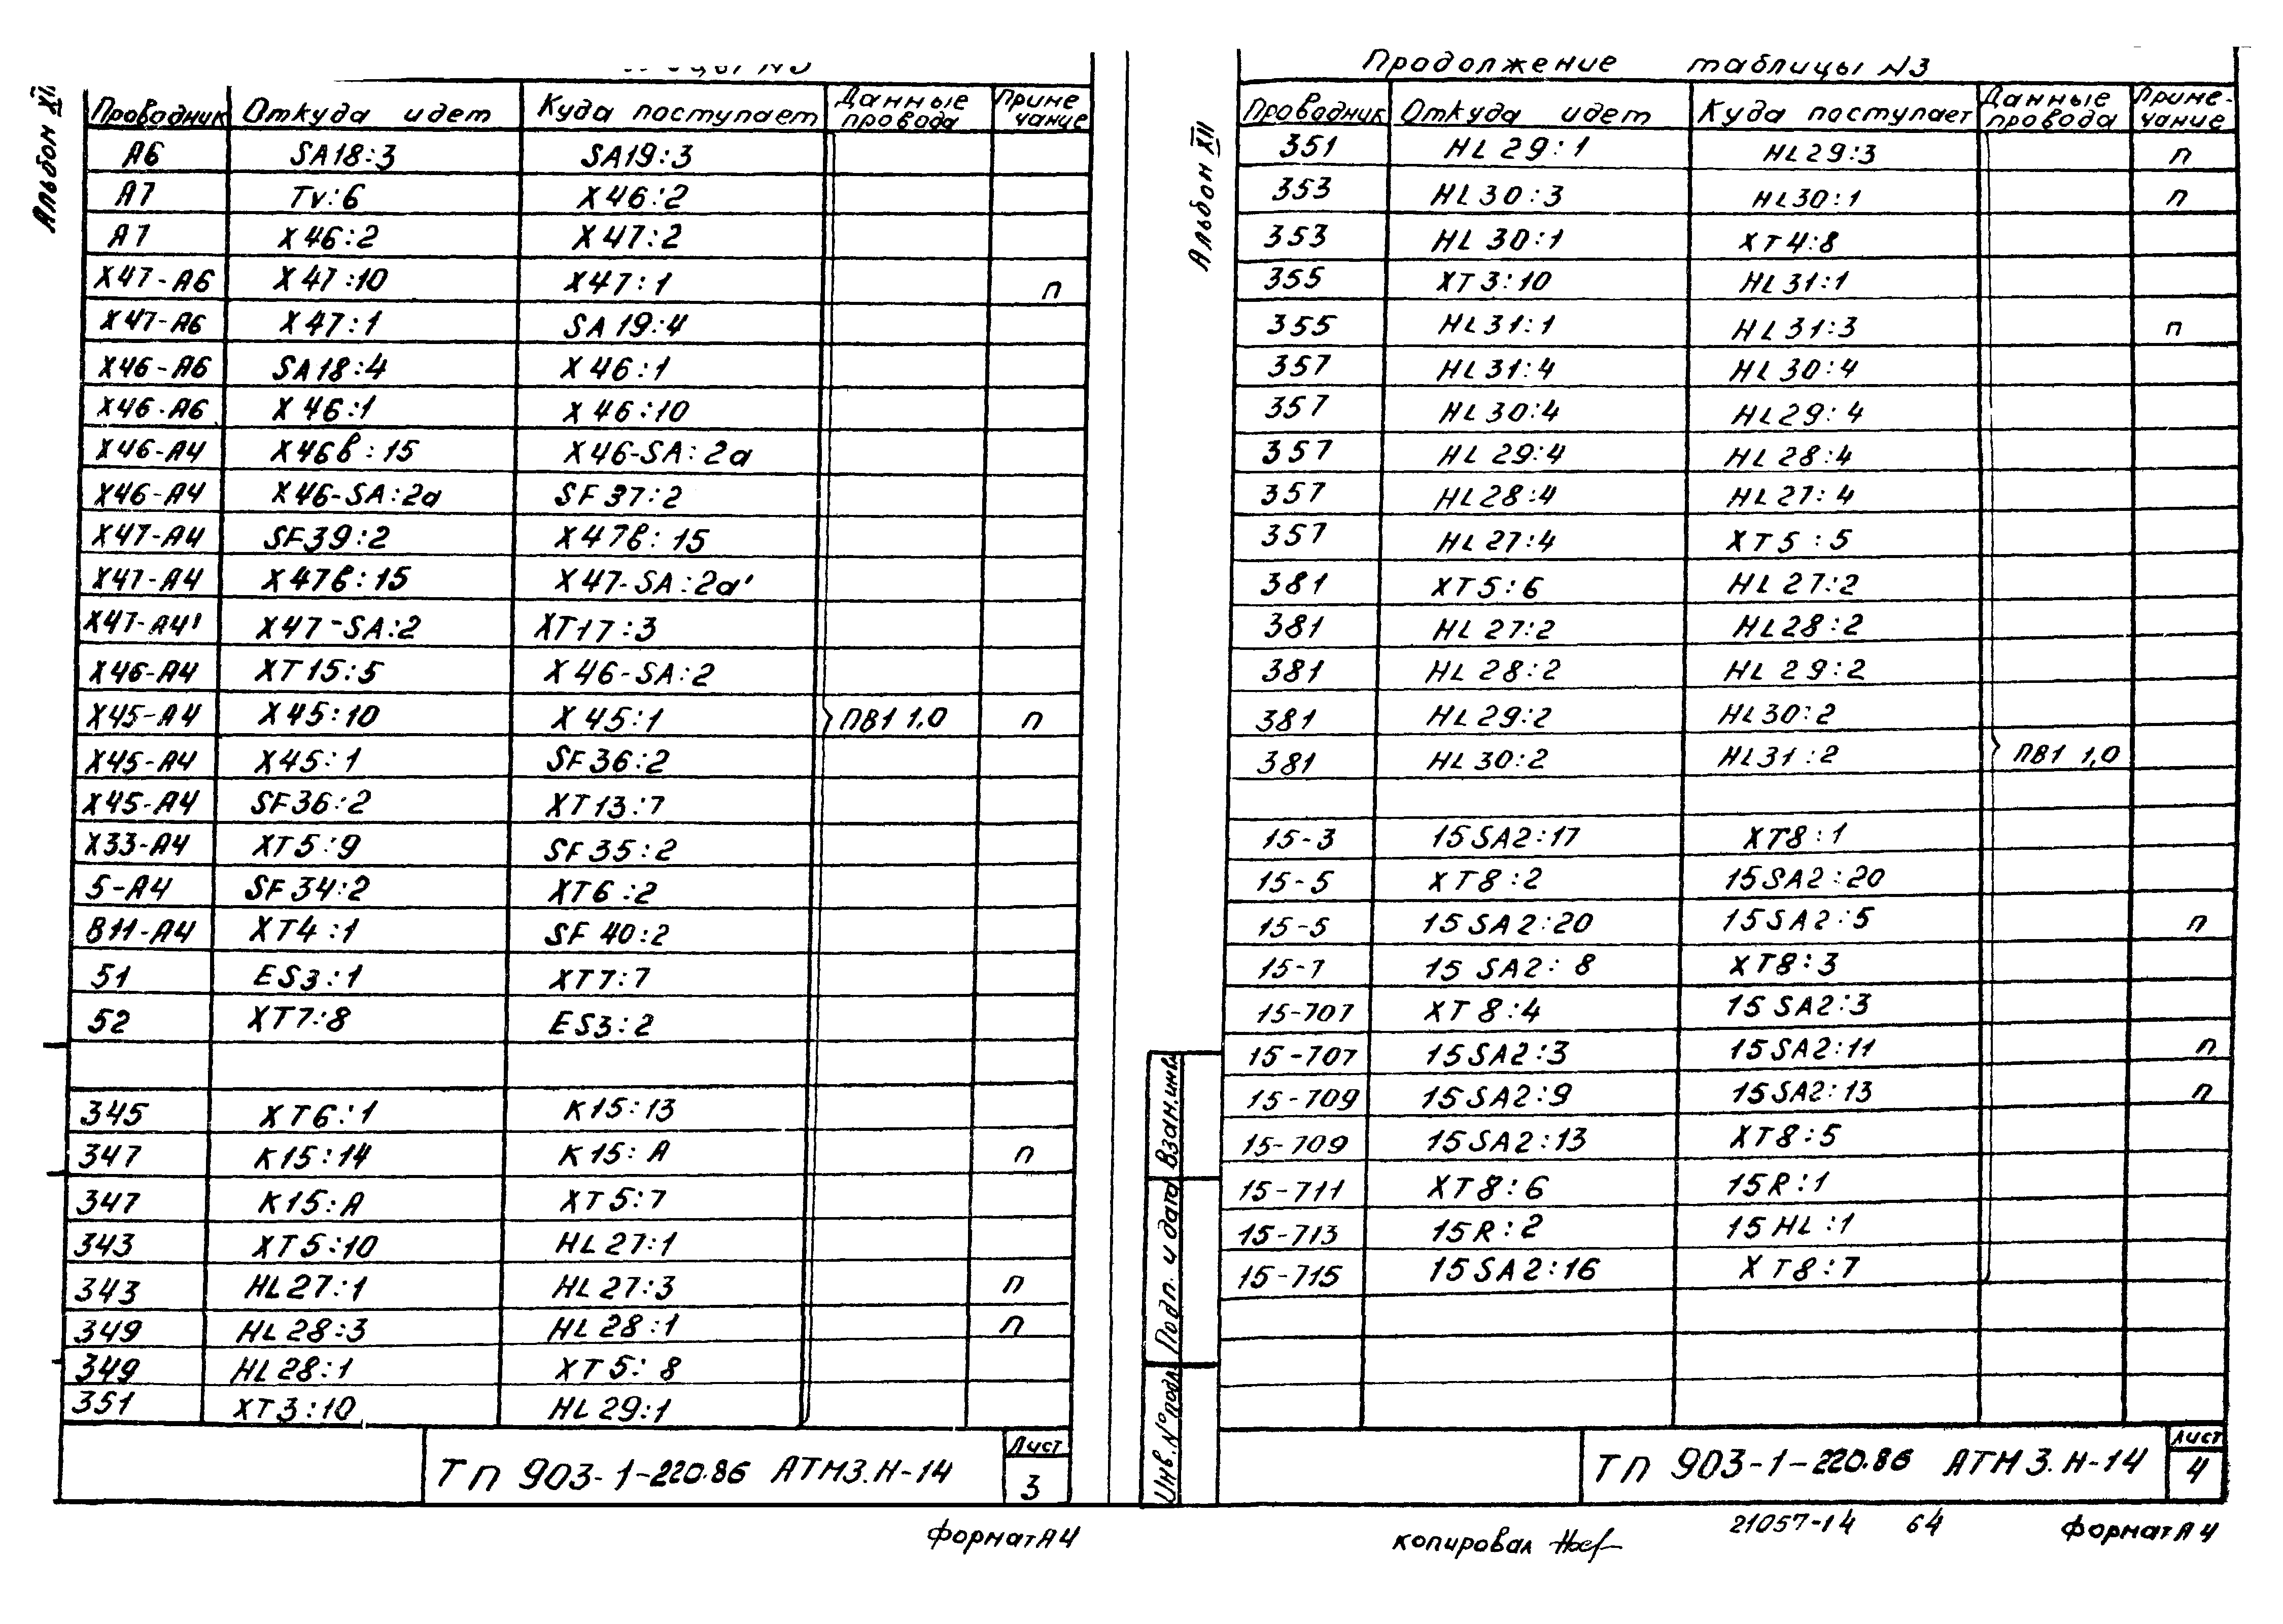 Альбом XII
Проводник Откуда идет Куда поступает Данные провода Примечание
А6 SA18:3 SA19:3
А7 Tv:6 X46:2
А7 X46:2 X47:2
X47-А6 X47:10 X47:1 п
X47-А6 X47:1 SA19:4
X46-А6 SA18:4 X46:1
X46-А6 X46:1 X46:10
X46-А4 X46в:15 X46-SA:2а
X46-А4 X46-SA:2а SF37:2
X47-А4 SF39:2 X47в:15
X47-А4 X47в:15 X47-SA:2а'
X47-А4' X47-SA:2 XT17:3
X46-А4 XT15:5 X46-SA:2
X45-А4 X45:10 X45:1 ПВ1 1,0 п
X45-А4 X45:1 SF36:2
X45-А4 SF36:2 XT13:7
X33-А4 XT5:9 SF35:2
5-А4 SF34:2 XT6:2
В11-А4 XT4:1 SF40:2
51 ES3:1 XT7:7
52 XT7:8 ES3:2
345 XT6:1 K15:13
347 K15:14 K15:А п
347 K15:А XT5:7
343 XT5:10 HL27:1
343 HL27:1 HL27:3 п
349 HL28:3 HL28:1 п
349 HL28:1 XT5:8
351 XT3:10 HL29:1
ТП 903-1-220.86 АТМ3.Н-14
Лист
3
Формат А4
Альбом XII
Продолжение таблицы N3
Проводник Откуда идет Куда поступает Данные провода Примечание
351 HL29:1 HL29:3 п
353 HL30:3 HL30:1 п
353 HL30:1 XT4:8
355 XT3:10 HL31:1
355 HL31:1 HL31:3 п
357 HL31:4 HL30:4
357 HL30:4 HL29:4
357 HL29:4 HL28:4
357 HL28:4 HL27:4
357 HL27:4 XT5:5
381 XT5:6 HL27:2
381 HL27:2 HL28:2
381 HL28:2 HL29:2
381 HL29:2 HL30:2
381 HL30:2 HL31:2 ПВ1 1,0
15-3 15SA2:17 XT8:1
15-5 XT8:2 15SA2:20
15-5 15SA2:20 15SA2:5 п
15-7 15SA2:8 XT8:3
15-707 XT8:4 15SA2:3
15-707 15SA2:3 15SA2:11 п
15-709 15SA2:9 15SA2:13 п
15-709 15SA2:13 XT8:5
15-711 XT8:6 15R:1
15-713 15R:2 15HL:1
15-715 15SA2:16 XT8:7
Взам.инв.
Подп. и дата
Инв.N°подл.
ТП 903-1-220.86 АТМ3.Н-14
Лист
4
21057-14 64
копировал
Формат А4